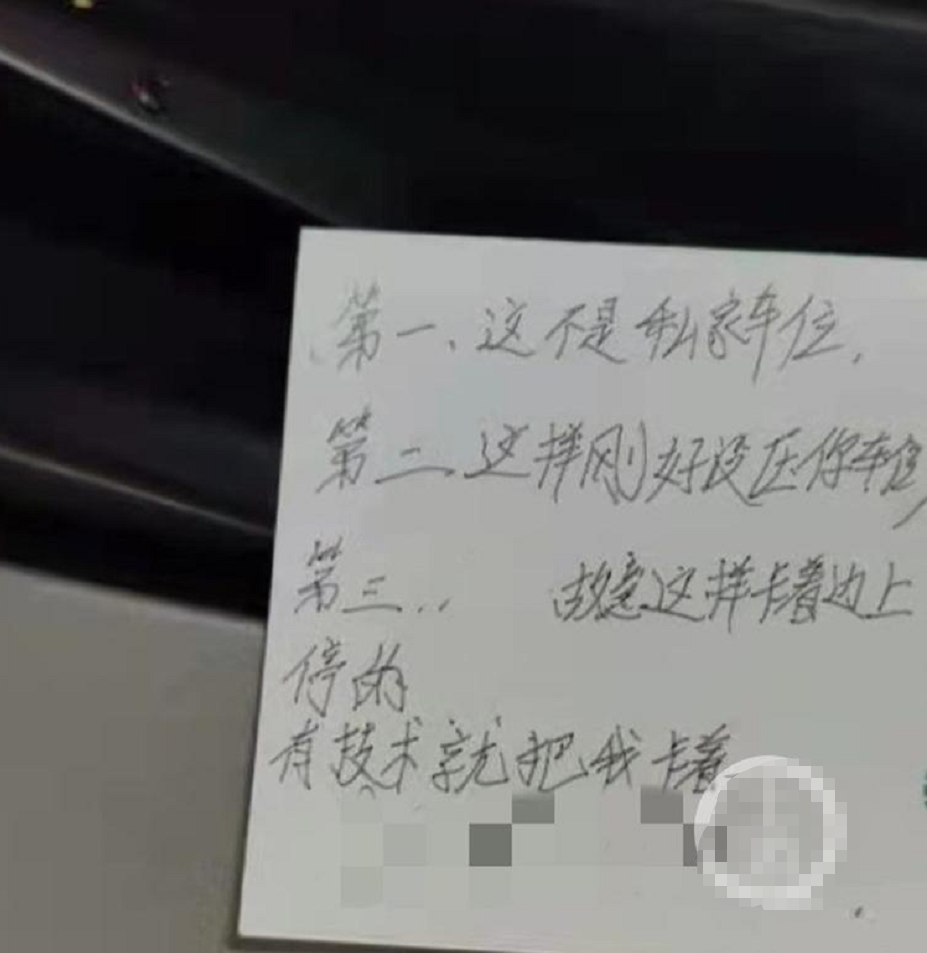 第一、这不是私家车位,
第二、这样刚好没压你车位,
第三.. 故意这样卡着边上
停的
有技术就把我卡着